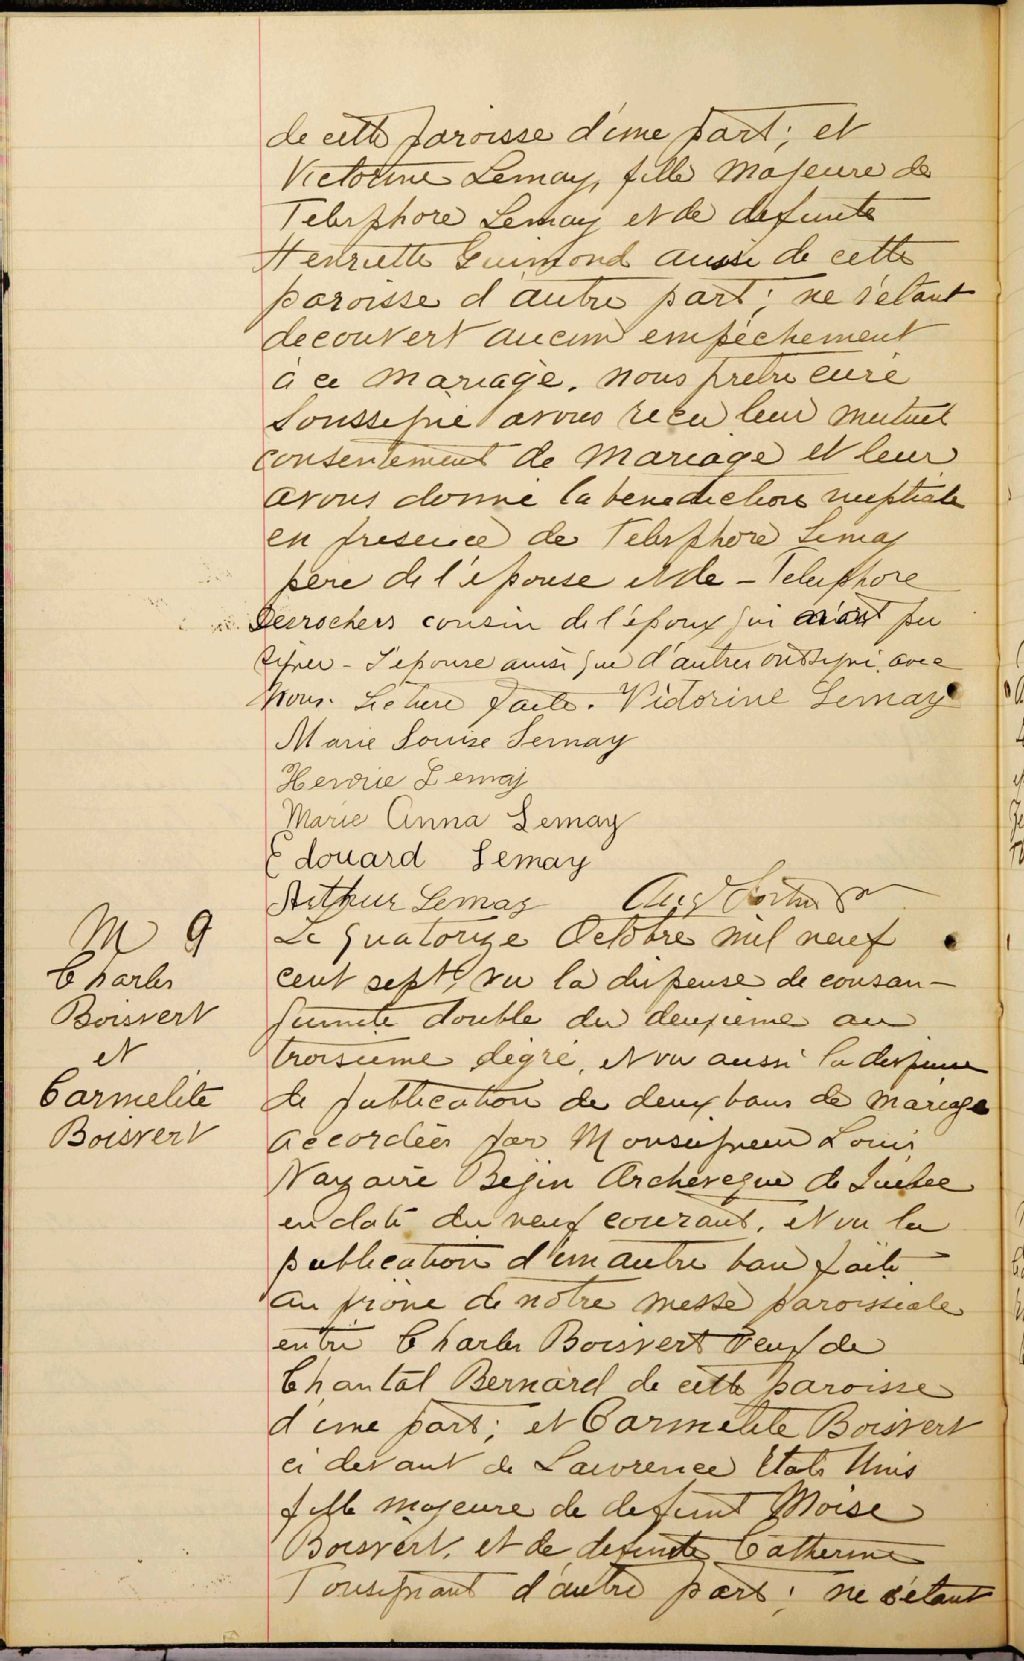 de cette paroisse d'une part; et
Victorine Lemay, fille majeure de
Telesphore Lemay et de defunte
Henriette Guimond aussi de cette
paroisse d'autre part; ne s'étant
decouvert aucun empéchement
à ce mariage, nous pretre curé
Soussigné avons recu leur mutuel
consentement de mariage et leur
avons donné la benediction nuptiale
en presence de Telesphore Lemay
père de l'épouse et de - Telesphore
Desrochers cousin de l'époux qui n'ont pu
signer - L'epouse ainsi que d'autres ont signé avec
Nous. Lecture faite. Victorine Lemay
Marie Louise Lemay
Henrie Lemay
Marie Anna Lemay
Edouard Lemay
Arthur Lemay
M 9
Charles
Boisvert
et
Carmelite
Boisvert
Le quatorze Octobre mil neuf
cent sept, vu la dispense de consan-
guinité double du deuxième au
troisième dégré, et vu aussi la dispense
de publication de deux bans de mariage
accordées par Monseigneur Louis
Nazaire Bégin Archevêque de Québec
en date du neuf courant, et vu la
publication d'un autre ban faite
au prône de notre messe paroissiale
entre Charles Boisvert veuf de
Chantal Bernard de cette paroisse
d'une part; et Carmelite Boisvert
ci devant de Lawrence Etats Unis
fille majeure de defunt Moise
Boisvert, et de defunte Catherine
Tousignant d'autre part; ne s'étant